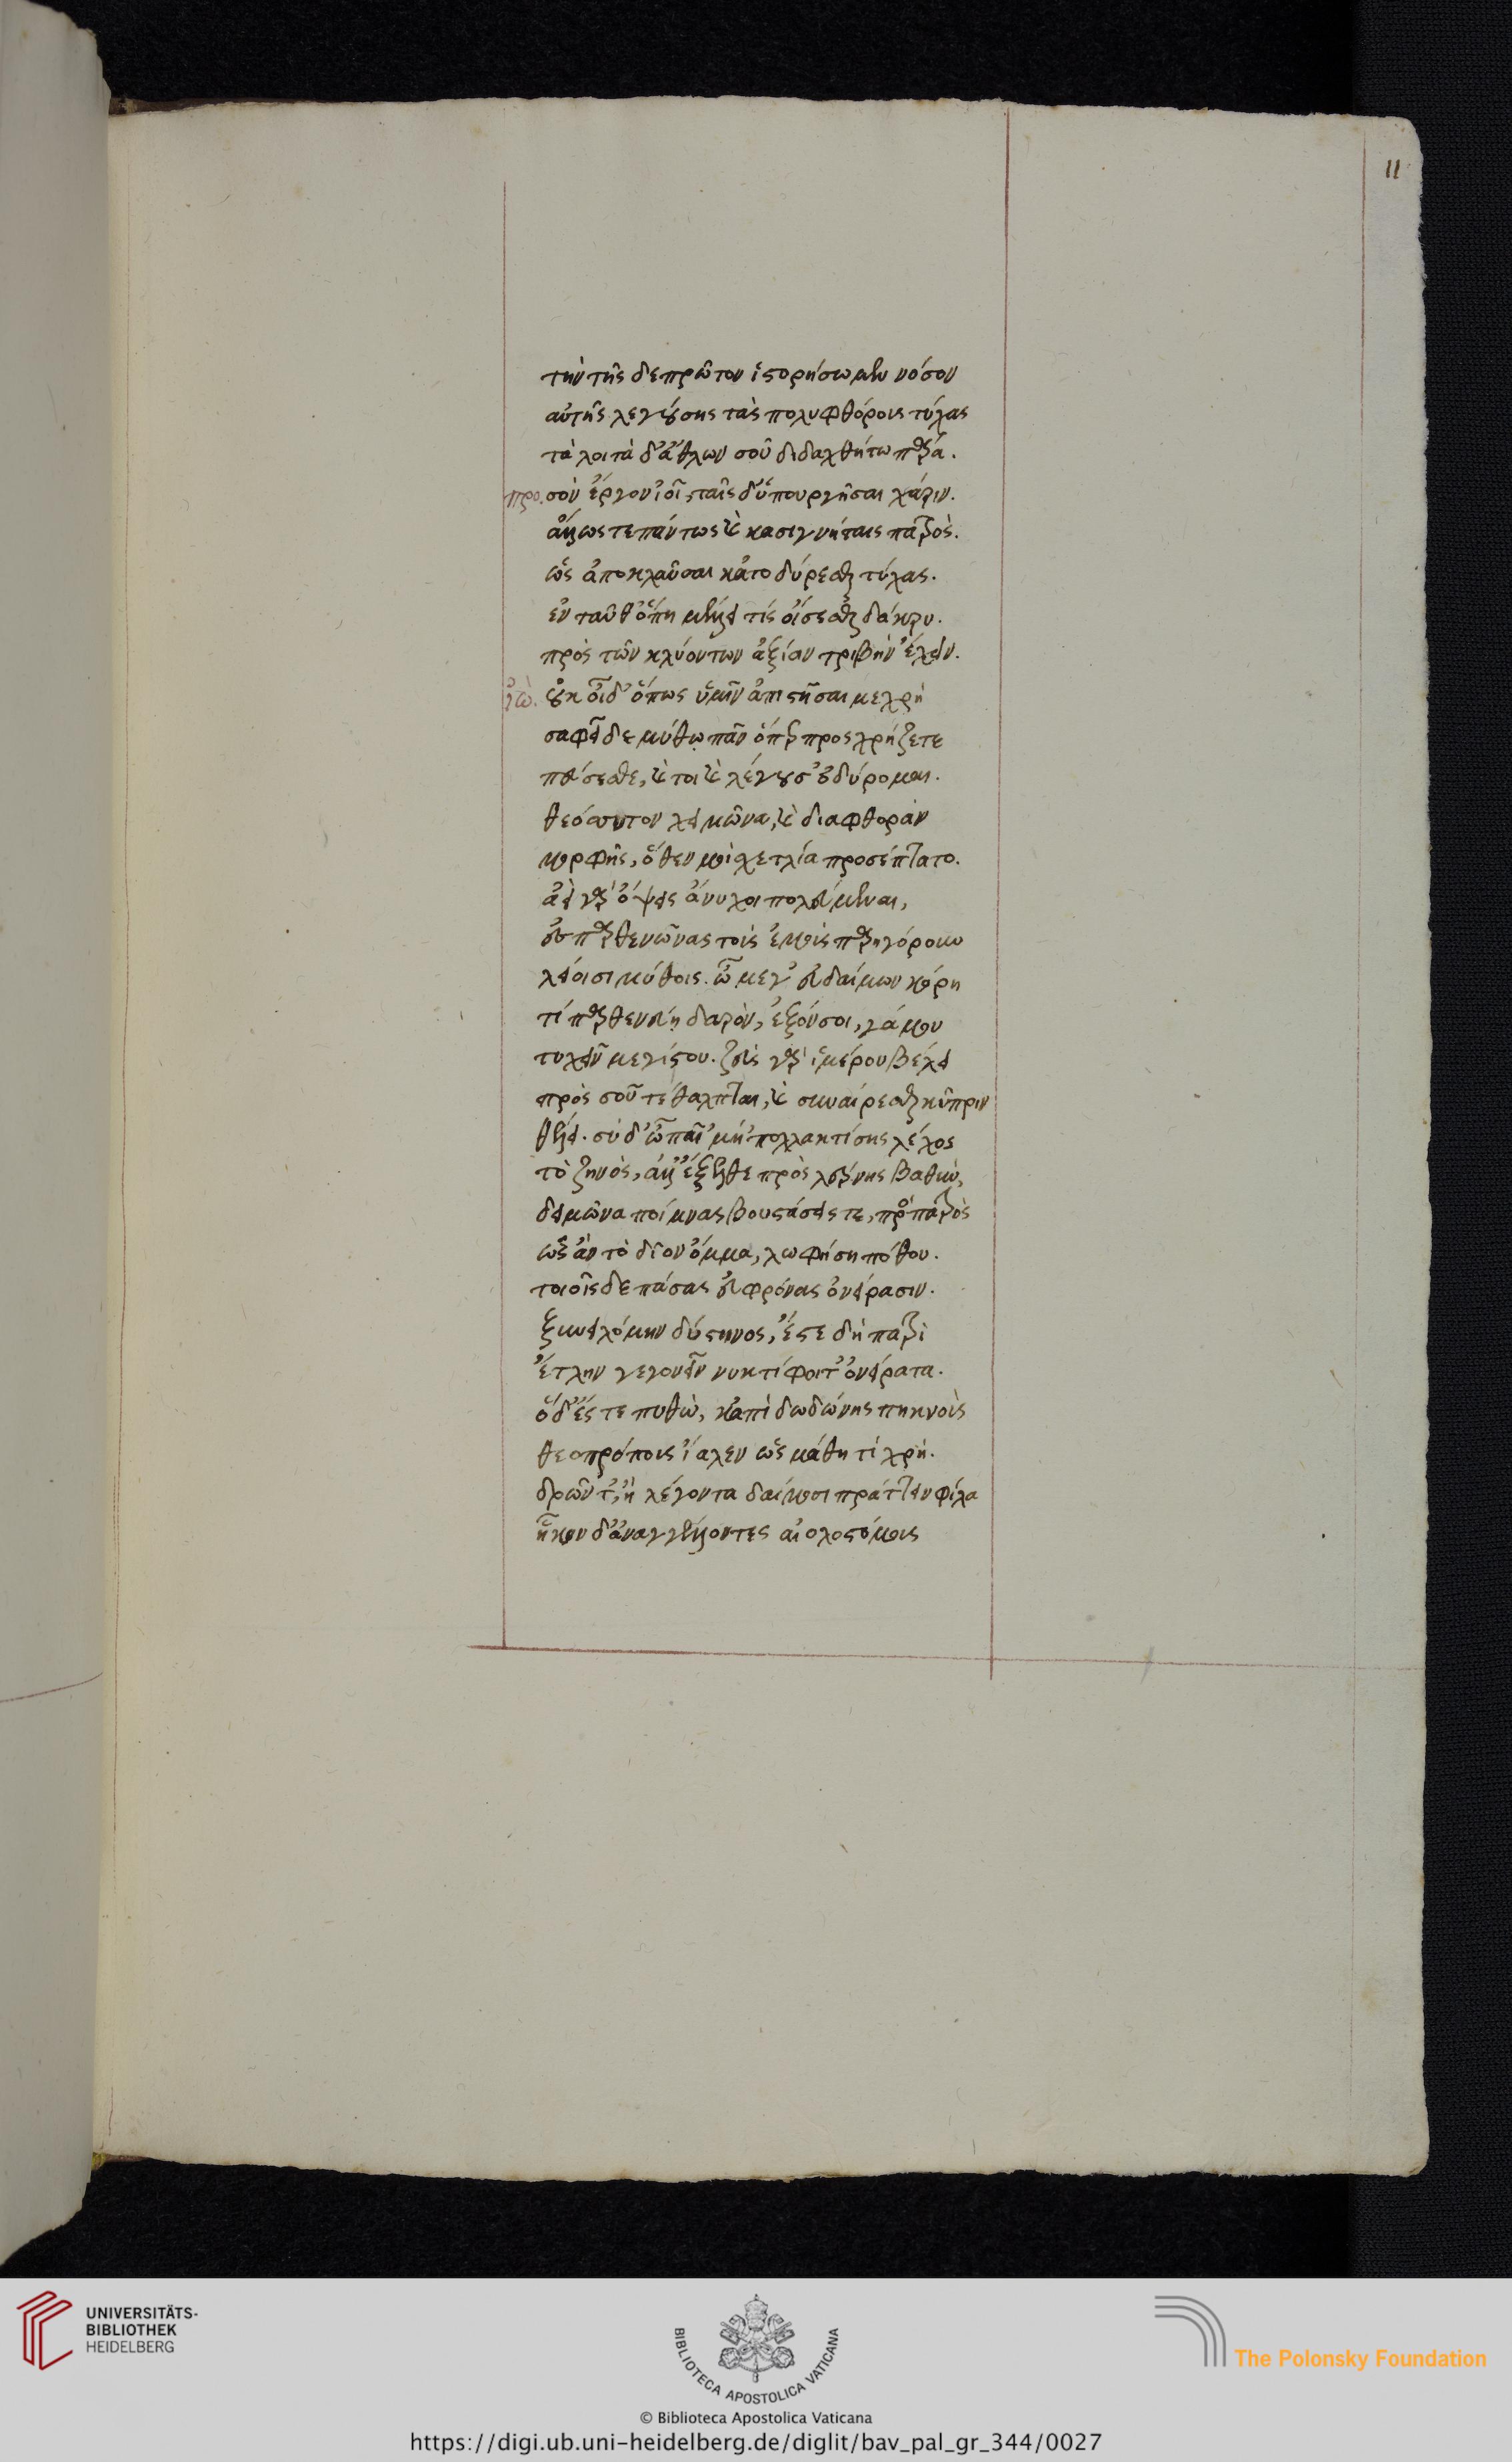 11
τὴν τῆς δε πρῶτον ἱστορήσωμεν νόσον
αὐτῆς λεγούσης τὰς πολυφθόρους τύχας
τὰ λοιπὰ δ' ἄθλων σοῦ διδαχθήτω πάρα.
προ. σὸν ἔργον ἰοῖ ταῖς δ' ὑπουργῆσαι χάριν.
ἄλλως τε πάντως καὶ κασιγνήταις πατρός.
ὡς ἀποκλαῦσαι κἀποδύρεσθαι τύχας.
ἐν ταῦθ' ὅπη μέλλει τίς οἴσεσθαι δάκρυ.
πρὸς τῶν κλυόντων ἀξίαν τριβὴν ἔχειν.
ἰὼ. οὐκ οἶδ' ὅπως ὑμῖν ἀπιστῆσαι με χρή
σαφεῖ δε μύθῳ πᾶν ὅπερ προσχρήζετε
πεύσεσθε, καί τοι καὶ λέγουσ' ὀδύρομαι.
θεόσσυτον χειμῶνα, καὶ διαφθορὰν
μορφῆς, ὅθεν μοὶ σχετλία προσέπτατο.
ἀεὶ γὰρ ὄψεις ἔννυχοι πολεύμεναι,
ἐς παρθενῶνας τοὺς ἐμοὺς παρηγόρουν
λείοισι μύθοις. ὦ μέγ' εὐδαίμων κόρη
τί παρθενεύῃ δαρὸν, ἐξόν σοι, γάμου
τυχεῖν μεγίστου. ζεὺς γὰρ ἱμέρου βέλει
πρὸς σοῦ τέθαλπται, καὶ συναίρεσθαι κύπριν
θέλει. σὺ δ' ὦ παῖ μή 'πολλακτίσῃς λέχος
τὸ ζηνὸς, ἀλλ' ἔξελθε πρὸς λέρνης βαθὺν,
λειμῶνα ποίμνας βουστάσεις τε, πρὸς πατρὸς
ὡς ἂν τὸ δῖον ὄμμα, λωφήσῃ πόθου.
τοιοῖς δε πάσας εὐφρόνας ὀνείρασιν.
ξυνειχόμην δύστηνος, ἔς τε δὴ πατρὶ
ἔτλην γεγωνεῖν νυκτίφοιτ' ὀνείρατα.
ὁ δ' ἔς τε πυθὼ, κἀπὶ δωδώνης πυκνοὺς
θεοπρόπους ἴαλλεν ὡς μάθῃ τί χρή.
δρῶντ', ἢ λέγοντα δαίμοσι πράττειν φίλα
ἧκον δ' ἀναγγέλλοντες αἰολοστόμους
UNIVERSITÄTS-
BIBLIOTHEK
HEIDELBERG
BIBLIOTECA APOSTOLICA VATICANA
The Polonsky Foundation
© Biblioteca Apostolica Vaticana
https://digi.ub.uni-heidelberg.de/diglit/bav_pal_gr_344/0027